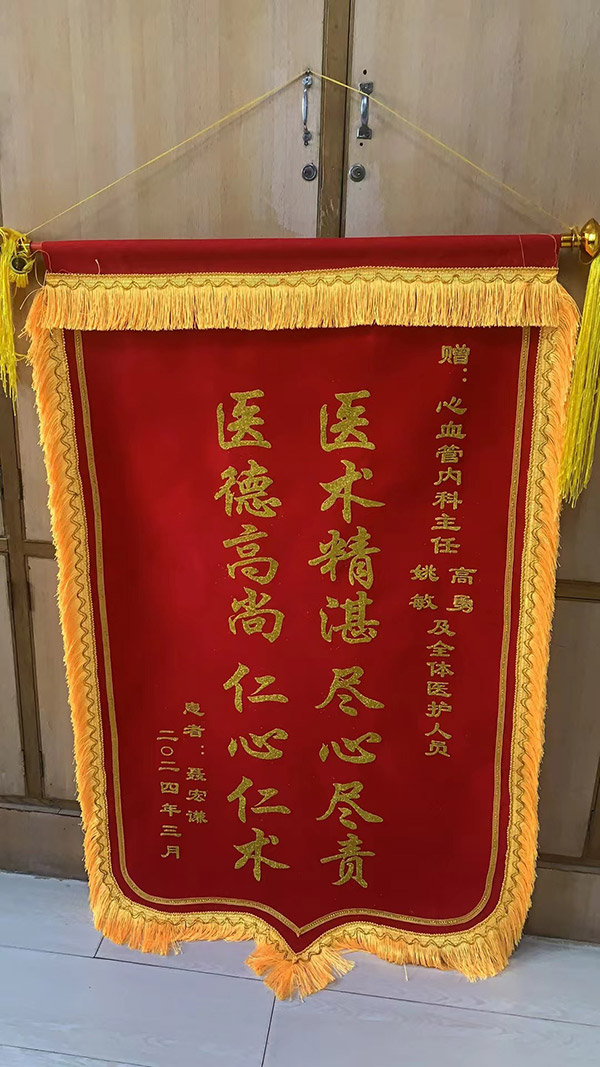 赠：心血管内科主任 高勇 姚敏 及全体医护人员
医术精湛 尽心尽责
医德高尚 仁心仁术
患者：聂宏谦
二〇二四年三月